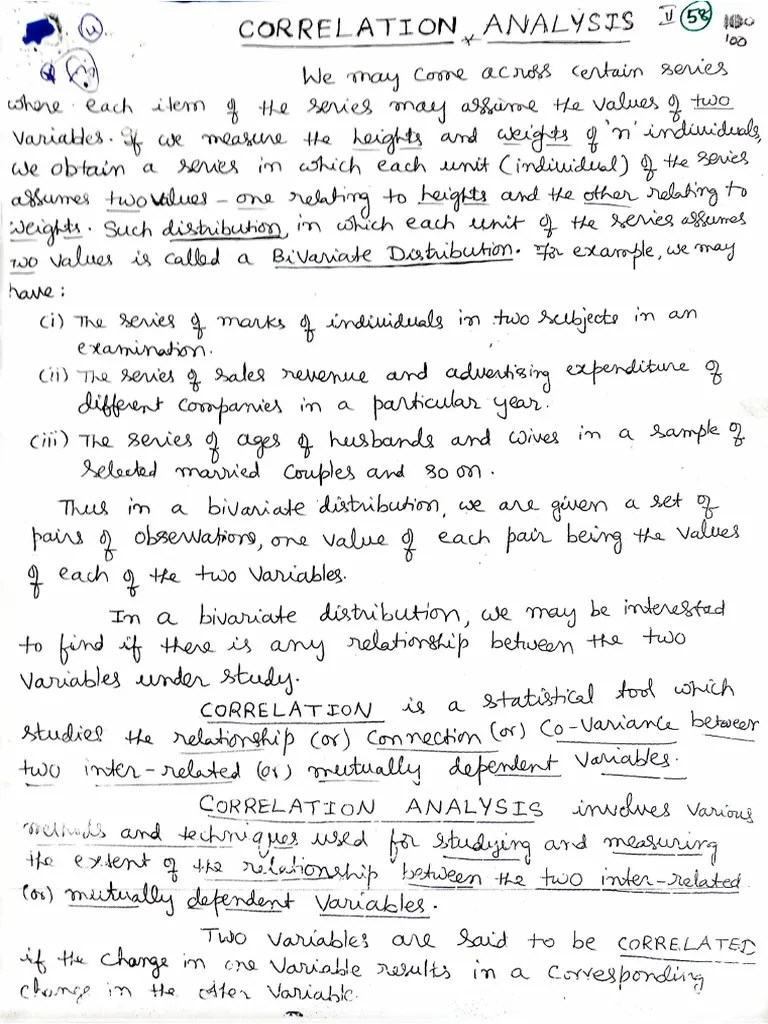 CORRELATION ANALYSIS V 58 100
100
We may come across certain series
where each item of the series may assume the values of two
variables. If we measure the heights and weights of 'n' individuals,
we obtain a series in which each unit (individual) of the series
assumes two values - one relating to heights and the other relating to
weights. Such distribution, in which each unit of the series assumes
two values is called a Bivariate Distribution. For example, we may
have:
(i) The series of marks of individuals in two subjects in an
examination.
(ii) The series of sales revenue and advertising expenditure of
different companies in a particular year.
(iii) The series of ages of husbands and wives in a sample of
selected married couples and so on.
Thus in a bivariate distribution, we are given a set of
pairs of observations, one value of each pair being the values
of each of the two variables.
In a bivariate distribution, we may be interested
to find if there is any relationship between the two
variables under study.
CORRELATION is a statistical tool which
studies the relationship (or) connection (or) Co-Variance between
two inter-related (or) mutually dependent variables.
CORRELATION ANALYSIS involves various
methods and techniques used for studying and measuring
the extent of the relationship between the two inter-related
(or) mutually dependent variables.
Two variables are said to be CORRELATED
if the change in one variable results in a corresponding
change in the other variable.